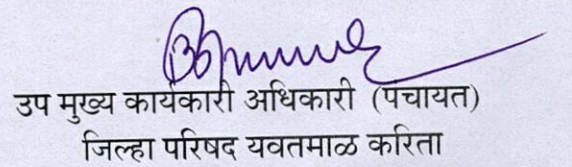 उप मुख्य कार्यकारी अधिकारी (पंचायत)
जिल्हा परिषद यवतमाळ करिता